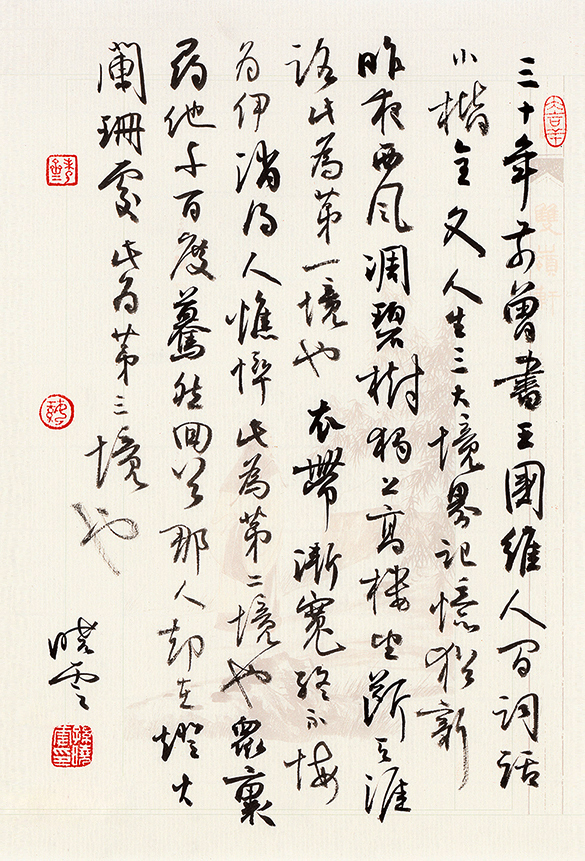 大吉羊
三十年前曾書王國維人间词话
小楷全文人生三大境界记憶犹新
昨夜西风凋碧樹獨上高樓望断天涯
路此為第一境也衣帶漸寬终不悔
为伊消得人憔悴此為第二境也眾裏
尋他千百度驀然回首那人却在燈火
闌珊處此为第三境也
晓雲